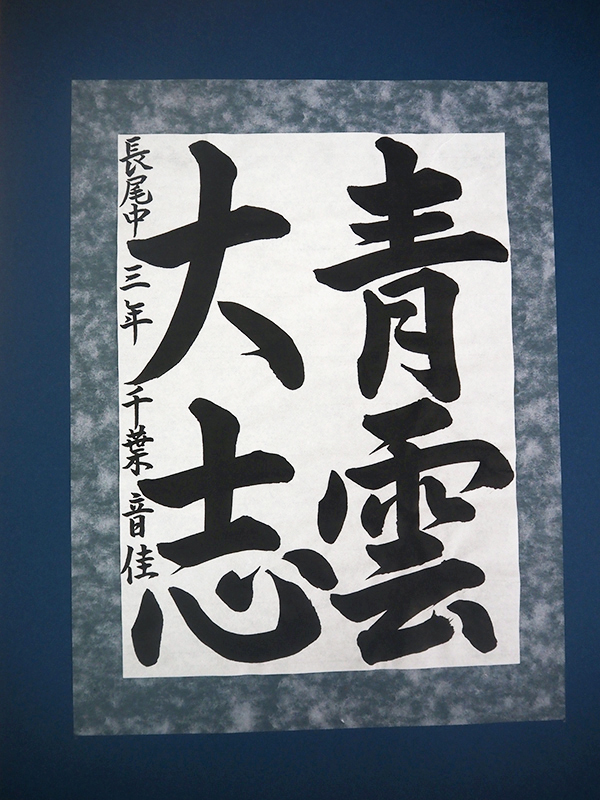 青雲
大志
長尾中 三年 千葉音佳